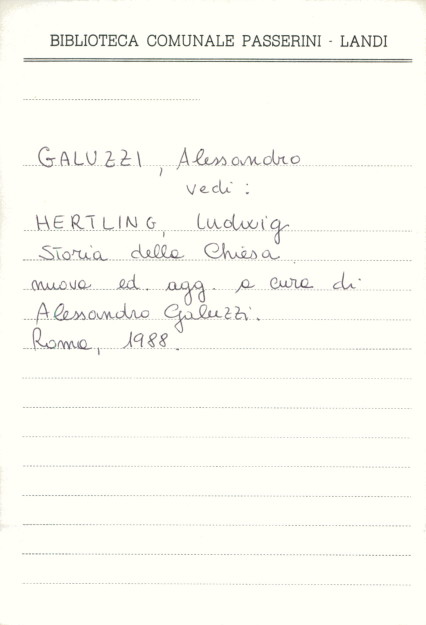 BIBLIOTECA COMUNALE PASSERINI - LANDI
GALUZZI, Alessandro
vedi:
HERTLING, Ludwig
Storia della Chiesa.
nuova ed. agg. a cura di
Alessandro Galuzzi.
Roma, 1988.